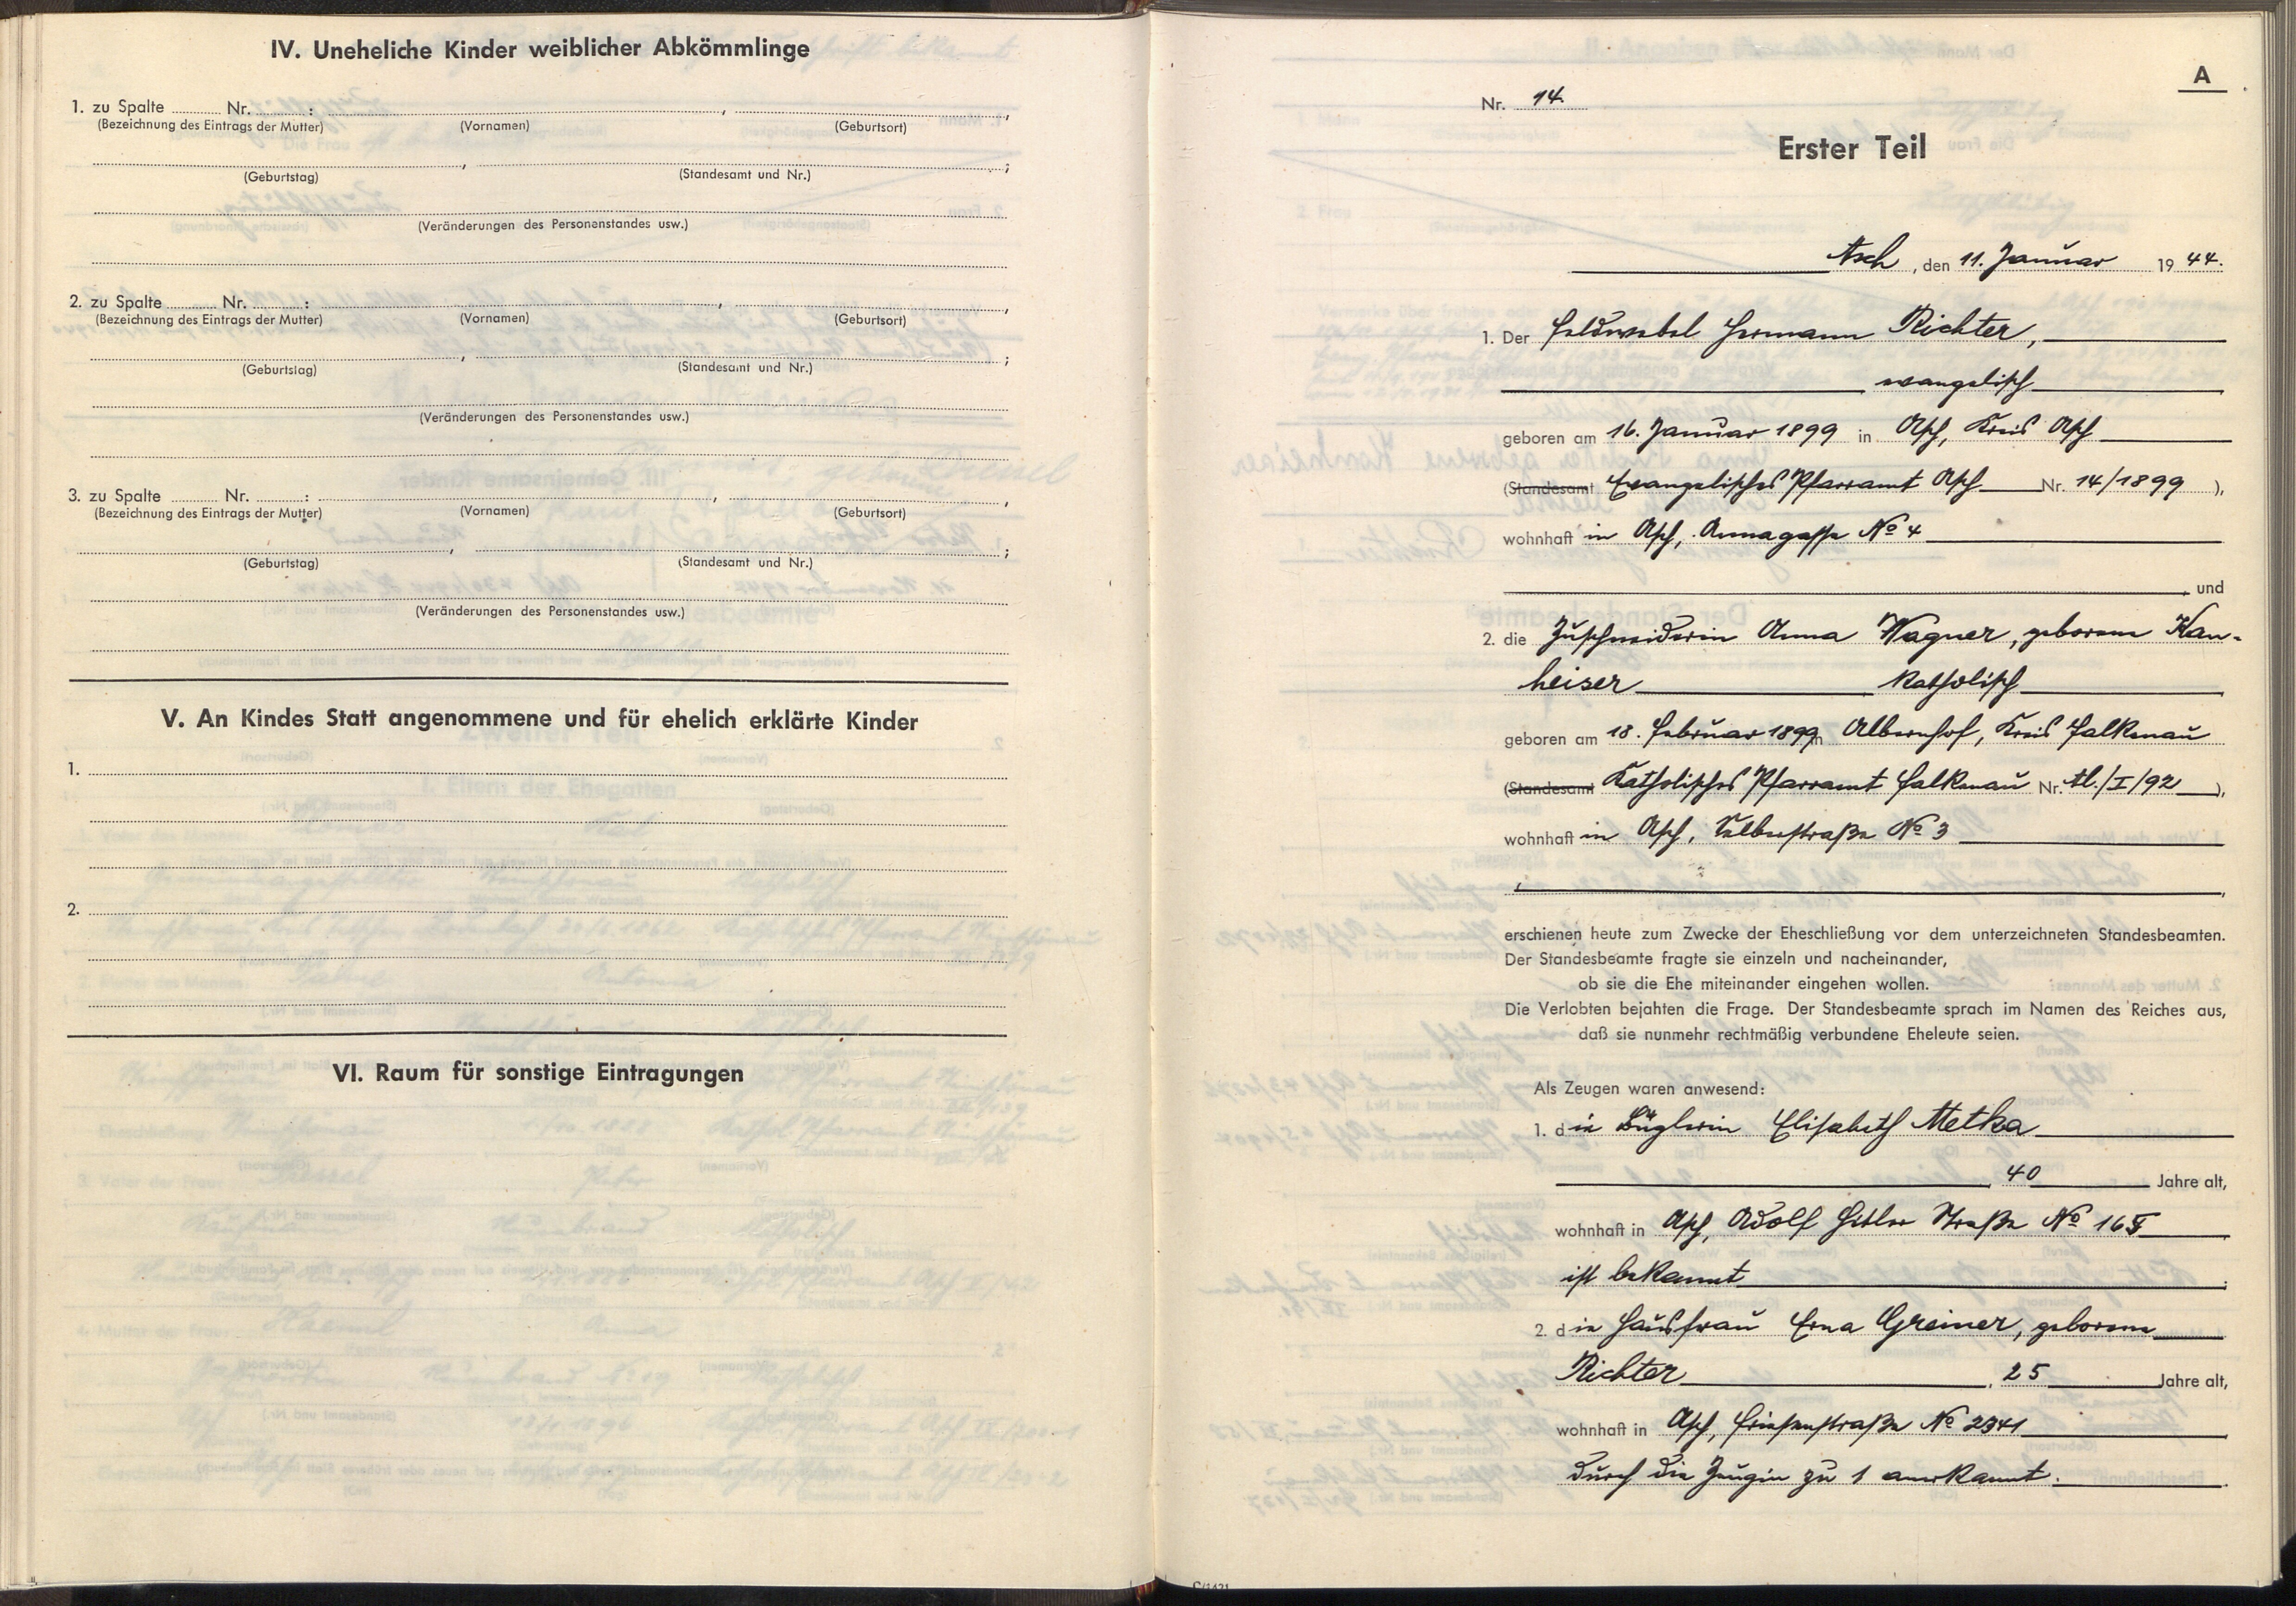 IV. Uneheliche Kinder weiblicher Abkömmlinge
1. zu Spalte ........ Nr. ........ : ........ , ........ ,
(Bezeichnung des Eintrags der Mutter) (Vornamen) (Geburtsort)
(Geburtstag) (Standesamt und Nr.)
(Veränderungen des Personenstandes usw.)
2. zu Spalte ........ Nr. ........ : ........ , ........ ,
(Bezeichnung des Eintrags der Mutter) (Vornamen) (Geburtsort)
(Geburtstag) (Standesamt und Nr.)
(Veränderungen des Personenstandes usw.)
3. zu Spalte ........ Nr. ........ : ........ , ........ ,
(Bezeichnung des Eintrags der Mutter) (Vornamen) (Geburtsort)
(Geburtstag) (Standesamt und Nr.)
(Veränderungen des Personenstandes usw.)
V. An Kindes Statt angenommene und für ehelich erklärte Kinder
1.
2.
VI. Raum für sonstige Eintragungen
A
Nr. 14.
Erster Teil
Asch, den 11. Januar 1944.
1. Der Feldwebel Hermann Richter,
evangelisch
geboren am 16. Januar 1899 in Asch, Kreis Asch
(Standesamt Evangelisches Pfarramt Asch Nr. 14/1899 ),
wohnhaft in Asch, Annagasse No 4
und
2. die Zuschneiderin Anna Wagner, geborene Kan-
heiser katholisch
geboren am 18. Februar 1899 in Albernhof, Kreis Falkenau
(Standesamt Katholisches Pfarramt Falkenau Nr. tl./I/92 ),
wohnhaft in Asch, Selberstraße No 3
erschienen heute zum Zwecke der Eheschließung vor dem unterzeichneten Standesbeamten.
Der Standesbeamte fragte sie einzeln und nacheinander,
ob sie die Ehe miteinander eingehen wollen.
Die Verlobten bejahten die Frage. Der Standesbeamte sprach im Namen des Reiches aus,
daß sie nunmehr rechtmäßig verbundene Eheleute seien.
Als Zeugen waren anwesend:
1. die Büglerin Elisabeth Metka
, 40 Jahre alt,
wohnhaft in Asch, Adolf Hitler Straße No
ist bekannt ;
2. die Hausfrau Erna Greiner, geborene
Richter , 25 Jahre alt,
wohnhaft in Asch, Friesenstraße No 2341
durch die Zeugin zu 1 anerkannt.